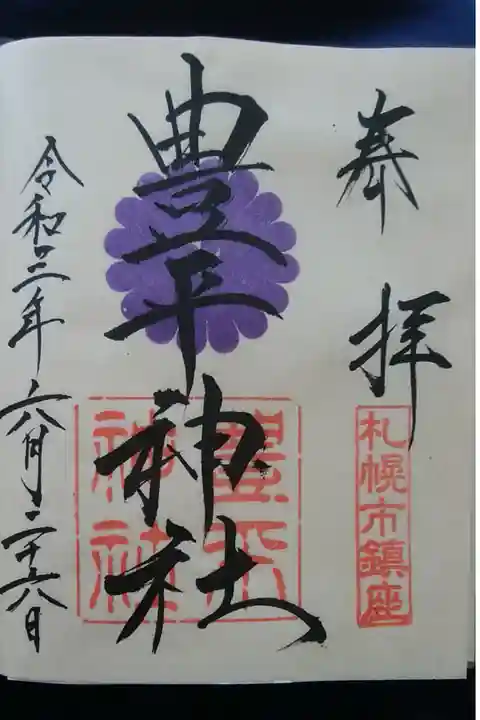 奉拝
札幌市鎮座
豊平神社
豊平神社
令和三年六月二十六日